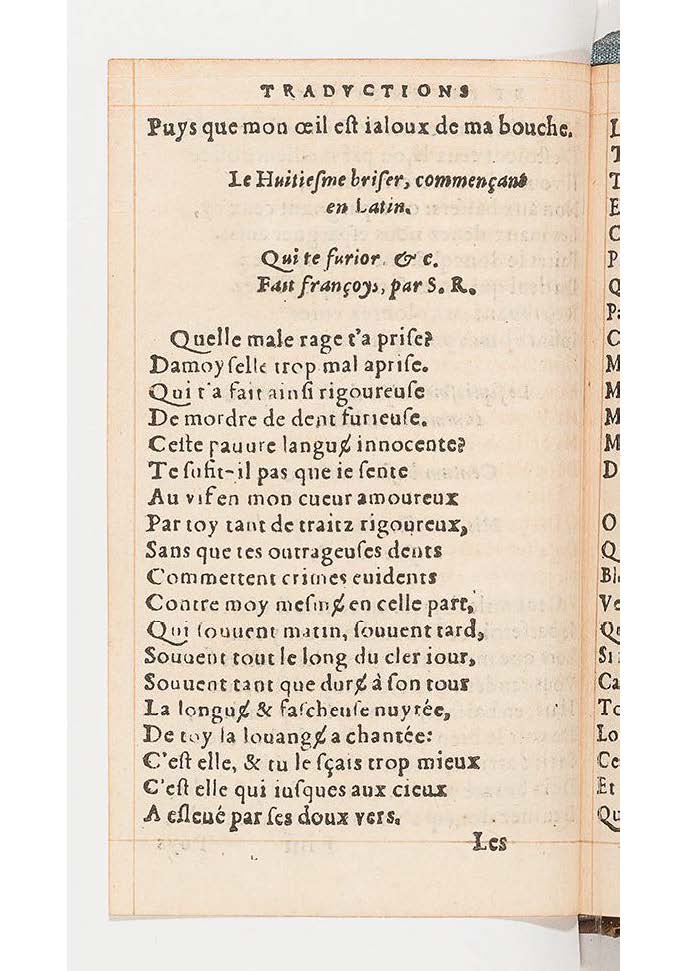 TRADVCTIONS
Puys que mon œil eſt ialoux de ma bouche.
Le Huitieſme briſer, commençant
en Latin.
Qui te furior. & c.
Fait françoys, par S. R.
Quelle male rage t'a priſe?
Damoyſelle trop mal apriſe.
Qui t'a fait ainſi rigoureuſe
De mordre de dent furieuſe.
Ceſte pauure languɇ innocente?
Te ſufit-il pas que ie ſente
Au vif en mon cueur amoureux
Par toy tant de traitz rigoureux,
Sans que tes outrageuſes dents
Commettent crimes euidents
Contre moy meſmɇ en celle part,
Qui ſouuent matin, ſouuent tard,
Souuent tout le long du cler iour,
Souuent tant que durɇ à ſon tour
La longuɇ & faſcheuſe nuytée,
De toy la louangɇ a chantée:
C'eſt elle, & tu le ſçais trop mieux
C'eſt elle qui iuſques aux cieux
A eſleué par ſes doux vers.
Les